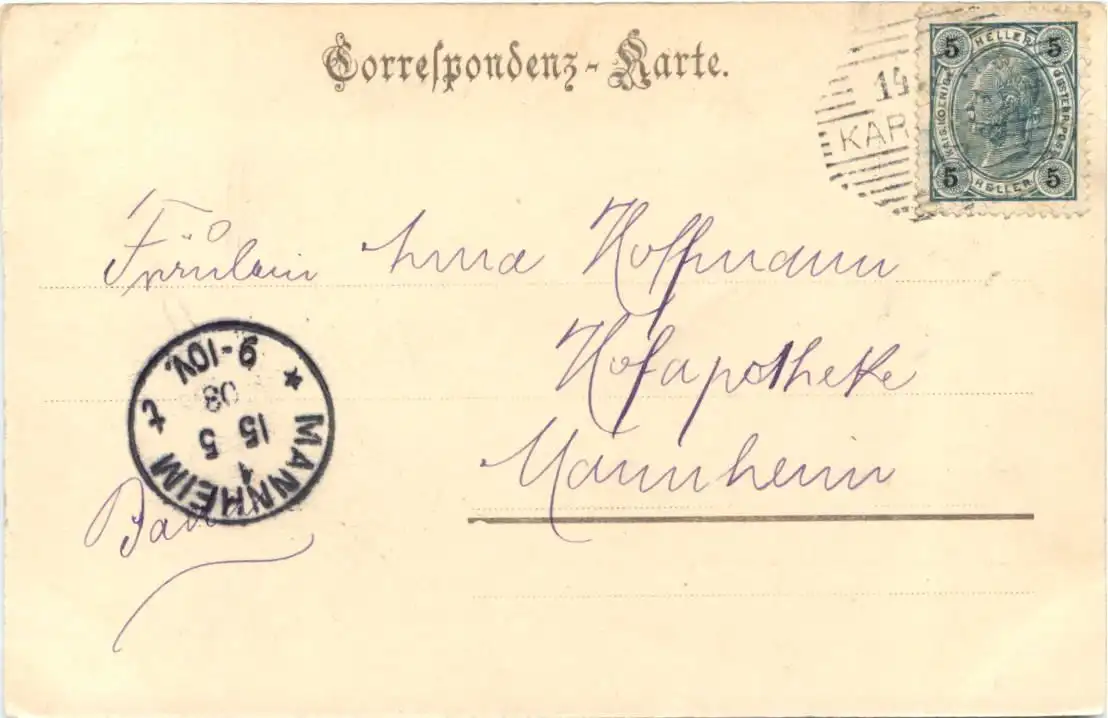 Correspondenz-Karte.
5 HELLER 5
KAIS. KOENIGL. ÖSTERR. POST
5 HELLER 5
14
KAR
Fräulein Anna Hoffmann
Hofapotheke
Mannheim
Baden
MANNHEIM 1
15 5
03
9-10V.